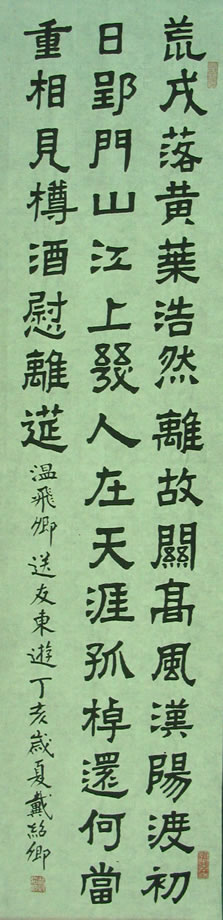 荒戍落黄葉浩然離故關髙風漢陽渡初
日郢門山江上幾人在天涯孤棹還何當
重相見樽酒慰離莚
温飛卿送友東遊丁亥歲夏戴紹卿